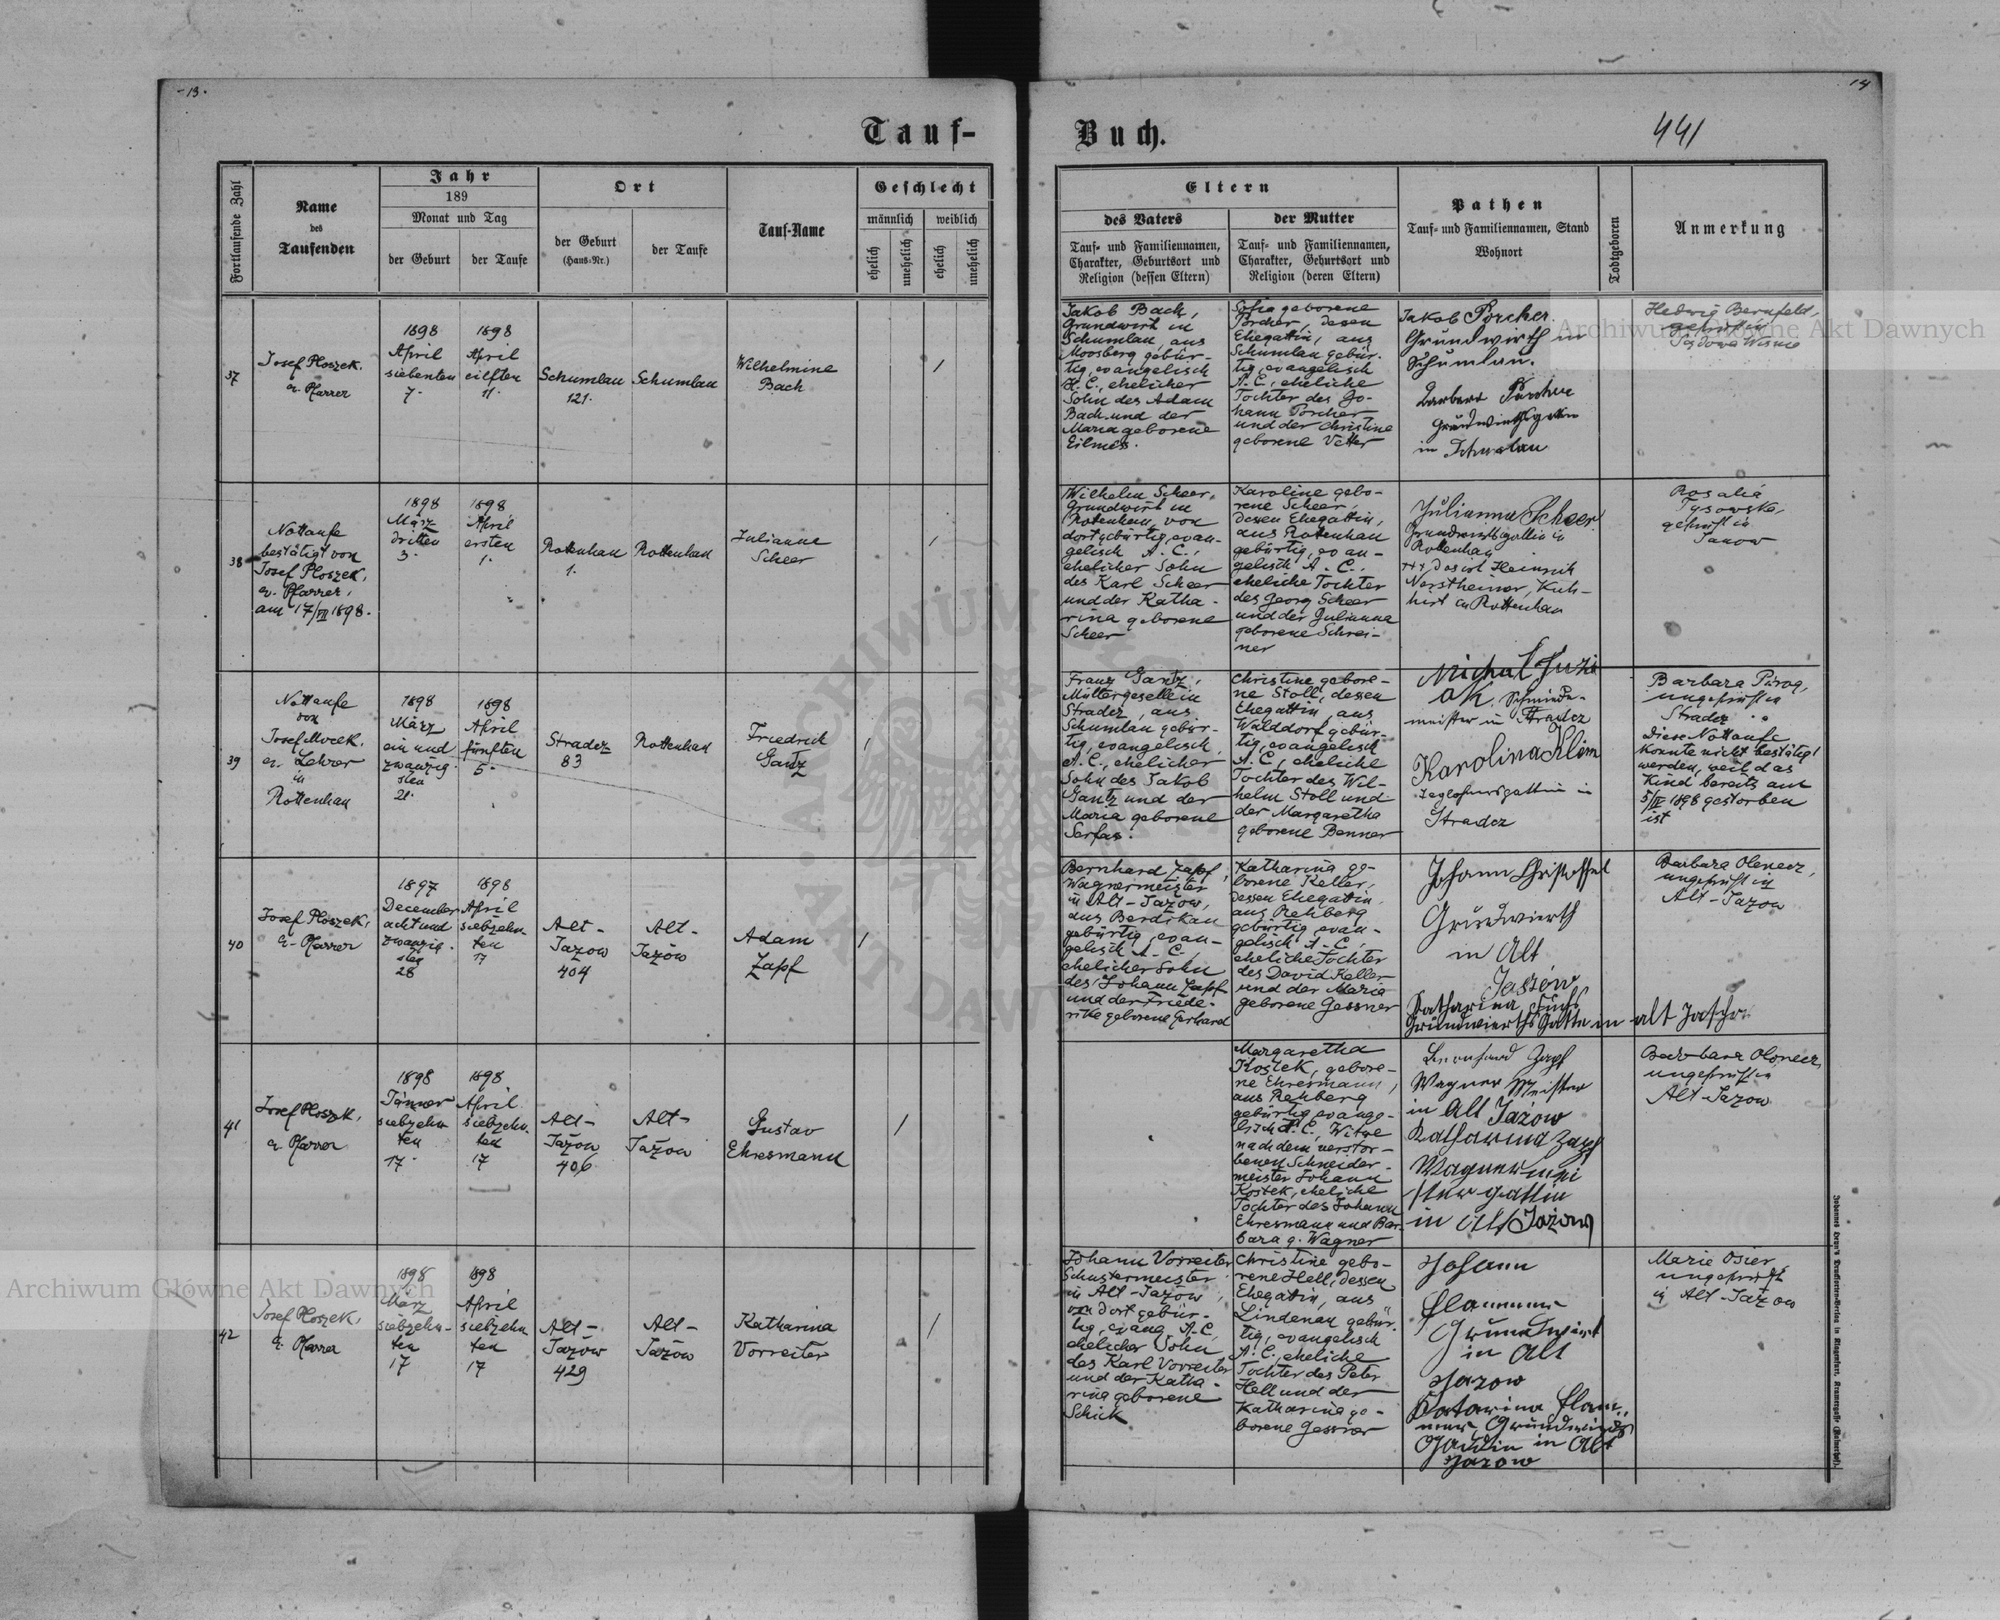 - 13 .
14
Tauf-
Buch.
441
Fortlaufende Zahl
Name
des
Taufenden
Jahr
189
Monat und Tag
der Geburt
der Taufe
Ort
der Geburt
(Haus-Nr.)
der Taufe
Tauf-Name
Geschlecht
männlich
weiblich
ehelich
unehelich
ehelich
unehelich
Eltern
des Vaters
Tauf- und Familiennamen,
Charakter, Geburtsort und
Religion (dessen Eltern)
der Mutter
Tauf- und Familiennamen,
Charakter, Geburtsort und
Religion (deren Eltern)
Pathen
Tauf- und Familiennamen, Stand
Wohnort
Todtgeboren
Anmerkung
37
Josef Ploszek,
ev. Pfarrer
1898
April
siebenten
7.
1898
April
eilften
11.
Schumlau
121.
Schumlau
Wilhelmine
Bach
/
Jakob Bach,
Grundwirt in
Schumlau, aus
Moosberg gebür-
tig, evangelisch
H. C., ehelicher
Sohn des Adam
Bach und der
Maria geborene
Eilmes.
Sofia geborene
Porcher, dessen
Ehegattin, aus
Schumlau gebür-
tig, evangelisch
A. C., eheliche
Tochter des Jo-
hann Porcher
und der Christine
geborene Vetter
Jakob Porcher
Grundwirth in
Schumlau.
Barbara Porcher
Grundwirthsgattin
in Schumlau
Hedwig Bernfeld,
geprüft in
38
Nottaufe
bestätigt von
Josef Ploszek,
ev. Pfarrer,
am 17/VII 1898.
1898
März
dritten
3.
1898
April
ersten
1.
Rottenhan
1.
Rottenhan
Julianne
Scheer
/
Wilhelm Scheer,
Grundwirt in
Rottenhan, von
dort gebürtig, evan-
gelisch A. C.,
ehelicher Sohn
des Karl Scheer
und der Katha-
rina geborene
Scheer
Karoline gebo-
rene Scheer,
dessen Ehegattin,
aus Rottenhan
gebürtig, evan-
gelisch A. C.,
eheliche Tochter
des Georg Scheer
und der Julianna
geborene Schrei-
ner
Julianna Scheer
Grundwirtsgattin in
Rottenhan
+++ das ist Heinrich
Nerstheimer, Kuh-
hirt in Rottenhan
Rosalia
Tysowska,
geprüft in
Janow
39
Nottaufe
von
Josef Mock,
ev. Lehrer
in
Rottenhan
1898
März
ein und
zwanzig-
sten
21.
1898
April
fünften
5.
Stradcz
83
Rottenhan
Friedrich
Gantz
/
Franz Gantz,
Müllergeselle in
Stradcz, aus
Schumlau gebür-
tig, evangelisch
A. C., ehelicher
Sohn des Jakob
Gantz und der
Maria geborene
Serfas.
Christine gebore-
ne Stoll, dessen
Ehegattin, aus
Walddorf gebür-
tig, evangelisch
A. C., eheliche
Tochter des Wil-
helm Stoll und
der Margaretha
geborene Benner
Michał Juzi
ak, Schmiede-
meister in Stradcz
Karolina Klim
Taglöhnersgattin in
Stradcz
Barbara Pirog,
ungeprüft in
Stradcz
Diese Nottaufe
konnte nicht bestätigt
werden, weil das
Kind bereits am
5/IV 1898 gestorben
ist
40
Josef Ploszek,
ev. Pfarrer
1897
December
acht und
zwanzig-
sten
28
1898
April
siebzehn-
ten
17
Alt-
Jazow
404
Alt-
Jazów
Adam
Zapf
/
Bernhard Zapf,
Wagnermeister
in Alt-Jazow,
aus Berdikau
gebürtig, evan-
gelisch A. C.,
ehelicher Sohn
des Johann Zapf
und der Friede-
rike geborene Gerhard
Katharina ge-
borene Keller,
dessen Ehegattin,
aus Rehberg
gebürtig, evan-
gelisch A. C.,
eheliche Tochter
des David Keller
und der Maria
geborene Gessner
Johann Christoffel
Grundwierth
in Alt
Jasów
Katharina Fuchs
Gründwierths Gattin in alt Jaschow
Barbara Olenecz,
ungeprüft in
Alt-Jazow
41
Josef Ploszek,
ev. Pfarrer
1898
Jänner
siebzehn-
ten
17.
1898
April
siebzehn-
ten
17
Alt-
Jazow
406
Alt-
Jazow
Gustav
Ehresmann
/
Margaretha
Kostek, gebore-
ne Ehresmann,
aus Rehberg
gebürtig, evange-
lisch A. C., Witwe
nach dem verstor-
benen Schneider-
meister Johann
Kostek, eheliche
Tochter des Johann
Ehresmann und Bar-
bara g. Wagner
Bernhard Zapf
Wagner Meister
in Alt Jazow
Katharina Zapf
Wagnermei
ster gattin
in Alt Jazow
Barbara Olenecz,
ungeprüft in
Alt-Jazow
42
Josef Ploszek,
ev. Pfarrer
1898
März
siebzehn-
ten
17
1898
April
siebzehn
ten
17
Alt-
Jazow
429
Alt-
Jazów
Katharina
Vorreiter
/
Johann Vorreiter
Schustermeister
in Alt-Jazow,
von dort gebür-
tig, evang. A. C.,
ehelicher Sohn
des Karl Vorreiter
und der Katha-
rina geborene
Schick
Christine gebo-
rene Hell, dessen
Ehegattin, aus
Lindenau gebür-
tig, evangelisch
A. C., eheliche
Tochter des Peter
Hell und der
Katharina ge-
borene Gessner
Johann
Grundwirt
in Alt
Jazow
Katarina
Grundwirts
Gattin in Alt
Jazow
Marie Osier
ungeprüft
in Alt-Jazow
Archiwum Główne Akt Dawnych
Archiwum Główne Akt Dawnych
ARCHIWUM
AKT DAWNYCH